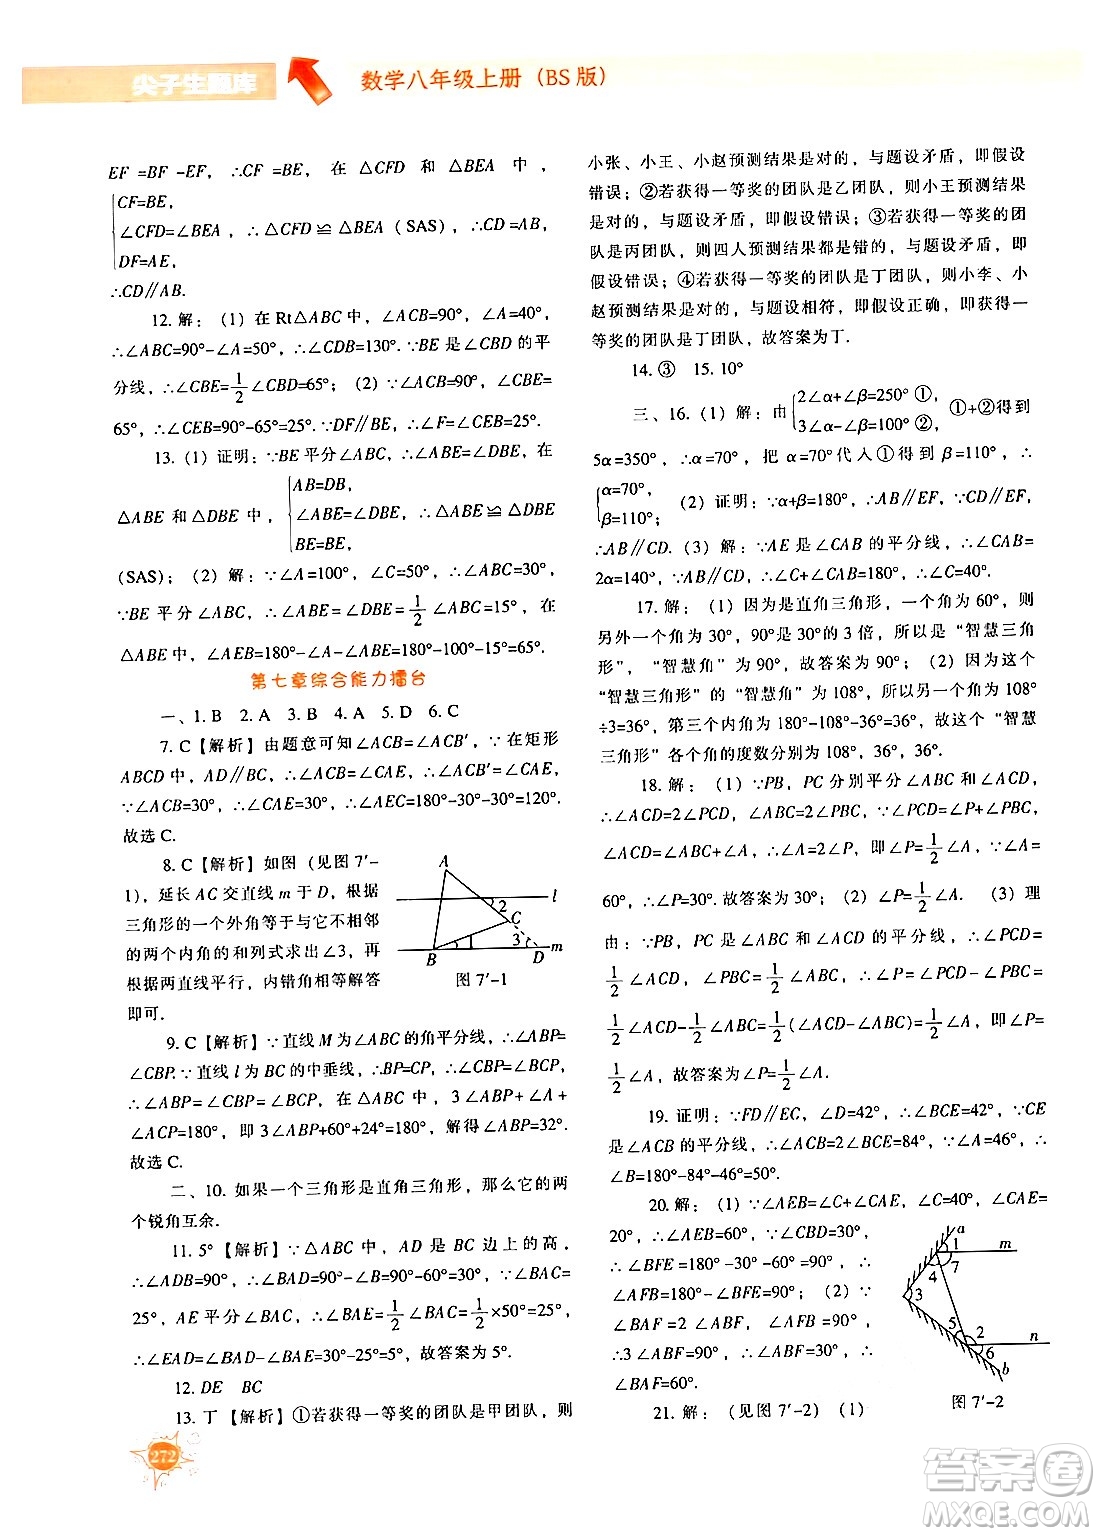 尖子生题库
数学八年级上册（BS版）
EF=BF-EF，∴CF=BE，在△CFD和△BEA中，
CF=BE，
∠CFD=∠BEA，∴△CFD≌△BEA（SAS），∴CD=BA，
DF=AE，
∴CD∥AB.
12. 解：（1）在Rt△ABC中，∠ACB=90°，∠A=40°，
∴∠ABC=90°-∠A=50°，∴∠CDB=130°.∵BE是∠CBD的平
分线，∴∠CBE=1/2∠CBD=65°；（2）∵∠ACB=90°，∠CBE=
65°，∴∠CEB=90°-65°=25°.∵DF∥BE，∴∠F=∠CEB=25°.
13.（1）证明：∵BE平分∠ABC，∴∠ABE=∠DBE，在
AB=DB，
△ABE和△DBE中，∠ABE=∠DBE，∴△ABE≌△DBE
BE=BE，
（SAS）；（2）解：∵∠A=100°，∠C=50°，∴∠ABC=30°，
∵BE平分∠ABC，∴∠ABE=∠DBE=1/2∠ABC=15°，在
△ABE中，∠AEB=180°-∠A-∠ABE=180°-100°-15°=65°.
第七章综合能力擂台
一、1. B 2. A 3. B 4. A 5. D 6. C
7. C【解析】由题意可知∠ACB=∠ACB′，∵在矩形
ABCD中，AD∥BC，∴∠ACB=∠CAE，∴∠ACB′=∠CAE，
∵∠ACB=30°，∴∠CAE=30°，∴∠AEC=180°-30°-30°=120°.
故选C.
8. C【解析】如图（见图7′-
1），延长AC交直线m于D，根据
三角形的一个外角等于与它不相邻
的两个内角的和列式求出∠3，再
根据两直线平行，内错角相等解答
即可.
A
2
l
C
3
B
D
m
图7′-1
9. C【解析】∵直线M为∠ABC的角平分线，∴∠ABP=
∠CBP.∵直线l为BC的中垂线，∴BP=CP，∴∠CBP=∠BCP，
∴∠ABP=∠CBP=∠BCP，在△ABC中，3∠ABP+∠A+
∠ACP=180°，即3∠ABP+60°+24°=180°，解得∠ABP=32°.
故选C.
二、10. 如果一个三角形是直角三角形，那么它的两
个锐角互余.
11. 5°【解析】∵△ABC中，AD是BC边上的高，
∴∠ADB=90°，∴∠BAD=90°-∠B=90°-60°=30°，∵∠EAC=
25°，AE平分∠BAC，∴∠BAE=1/2∠BAC=1/2×50°=25°，
∴∠EAD=∠BAD-∠BAE=30°-25°=5°，故答案为5°.
12. DE BC
13. 丁【解析】①若获得一等奖的团队是甲团队，则
小张、小王、小赵预测结果是对的，与题设矛盾，即假设
错误；②若获得一等奖的团队是乙团队，则小王预测结果
是对的，与题设矛盾，即假设错误；③若获得一等奖的团
队是丙团队，则四人预测结果都是错的，与题设矛盾，即
假设错误；④若获得一等奖的团队是丁团队，则小李、小
赵预测结果是对的，与题设相符，即假设正确，即获得一
等奖的团队是丁团队，故答案为丁.
14. ③ 15. 10°
三、16.（1）解：由2∠α+∠β=250° ①，3∠α-∠β=100° ②，①+②得到
5α=350°，∴α=70°，把α=70°代人①得到β=110°，∴
α=70°，β=110°；（2）证明：∵α+β=180°，∴AB∥EF，∵CD∥EF，
∴AB∥CD.（3）解：∵AE是∠CAB的平分线，∴∠CAB=
2α=140°，∵AB∥CD，∴∠C+∠CAB=180°，∴∠C=40°.
17. 解：（1）因为是直角三角形，一个角为60°，则
另外一个角为30°，90°是30°的3倍，所以是“智慧三角
形”，“智慧角”为90°，故答案为90°；（2）因为这个
“智慧三角形”的“智慧角”为108°，所以另一个角为108°
÷3=36°，第三个内角为180°-108°-36°=36°，故这个“智慧
三角形”各个角的度数分别为108°，36°，36°.
18. 解：（1）∵PB，PC分别平分∠ABC和∠ACD，
∴∠ACD=2∠PCD，∠ABC=2∠PBC，∵∠PCD=∠P+∠PBC，
∠ACD=∠ABC+∠A，∴∠A=2∠P，即∠P=1/2∠A，∵∠A=
60°，∴∠P=30°.故答案为30°；（2）∠P=1/2∠A.（3）理
由：∵PB，PC是∠ABC和∠ACD的平分线，∴∠PCD=
1/2∠ACD，∠PBC=1/2∠ABC，∴∠P=∠PCD-∠PBC=
1/2∠ACD-1/2∠ABC=1/2（∠ACD-∠ABC）=1/2∠A，即∠P=
1/2∠A，故答案为∠P=1/2∠A.
19. 证明：∵FD∥EC，∠D=42°，∴∠BCE=42°，∵CE
是∠ACB的平分线，∴∠ACB=2∠BCE=84°，∵∠A=46°，∴
∠B=180°-84°-46°=50°.
20. 解：（1）∵∠AEB=∠C+∠CAE，∠C=40°，∠CAE=
20°，∴∠AEB=60°，∵∠CBD=30°，
∴∠BFE=180°-30°-60°=90°，
∴∠AFB=180°-∠BFE=90°；（2）∵
∠BAF=2∠ABF，∠AFB=90°，
∴3∠ABF=90°，∴∠ABF=30°，
∴∠BAF=60°.
a
1
m
4 7
3
5
2
n
6
b
图7′-2
21. 解：（见图7′-2）（1）
272
答案圈
MXQE.COM